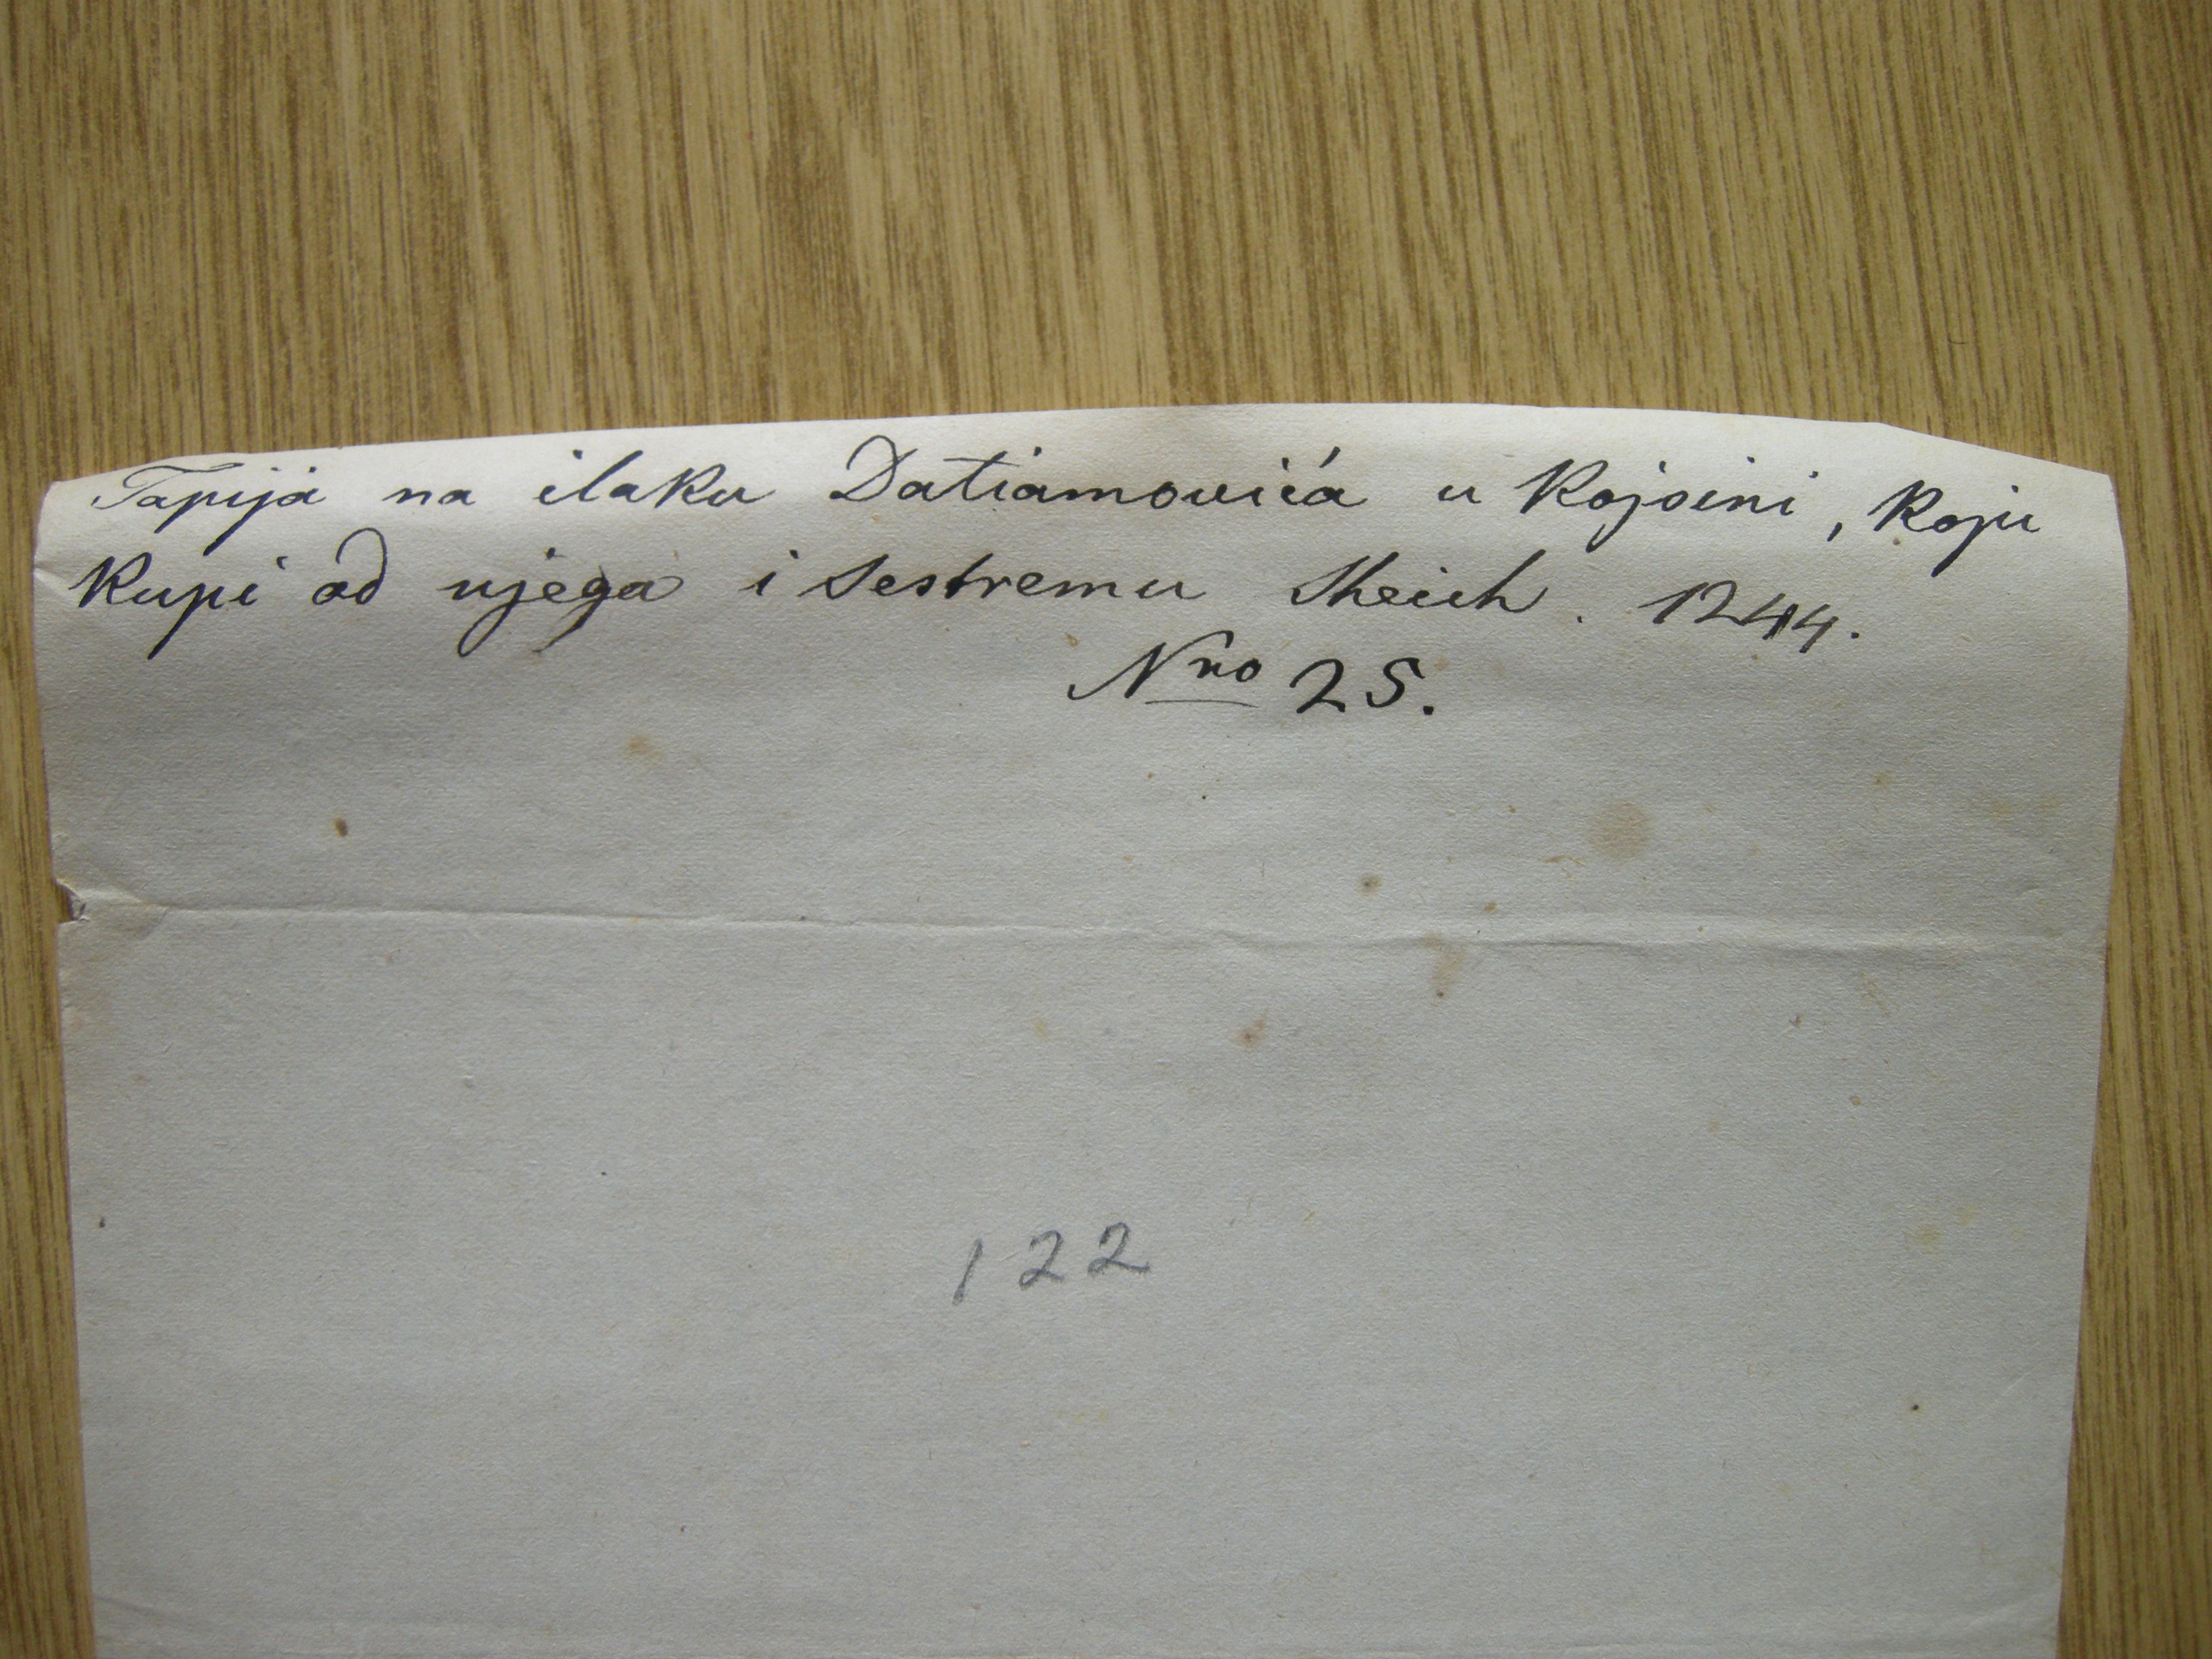 Tapija na ilaku Datiamovića u Kojsini, koju
Kupi od njega i Sestremu Sheich. 1244.
Nro 25.
122